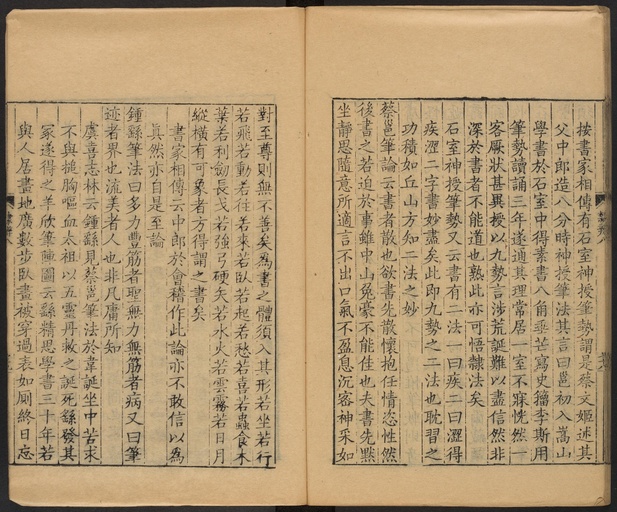 按書家相傳有石室神授筆勢謂是蔡文姬述其
父中郎造八分時神授筆法其言曰邕初入嵩山
學書於石室中得素書八角垂芒寫史籀李斯用
筆勢讀誦三年遂通其理常居一室不寐恍然一
客厥狀甚異授以九勢言涉荒誕難以盡信然非
深於書者不能道也熟此亦可悟隸法矣
石室神授筆勢又云書有二法一曰疾二曰澀得
疾澀二字書妙盡矣此即九勢之二法也耽習之
功積如丘山方知二法之妙
蔡邕筆論云書者散也欲書先散懷抱任情恣性然
後書之若迫於事雖中山兔豪不能佳也夫書先黙
坐静思隨意所適言不出口氣不盈息沉宻神采如
對至尊則無不善矣為書之體須入其形若坐若行
若飛若動若往若來若臥若起若愁若喜若蟲食木
葉若利劒長戈若强弓硬矢若水火若雲霧若日月
縱橫有可象者方得謂之書矣
書家相傳云中郎於會稽作此論亦不敢信以為
真然亦自是至論
鍾繇筆法曰多力豐筋者聖無力無筋者病又曰筆
迹者界也流美者人也非凡庸所知
虞喜志林云鍾繇見蔡邕筆法於韋誕坐中苦求
不與搥胸嘔血太祖以五靈丹救之誕死繇發其
冢遂得之羊欣筆陣圖云繇精思學書三十年若
與人居畫地廣數步臥畫被穿過表如厠終日忘